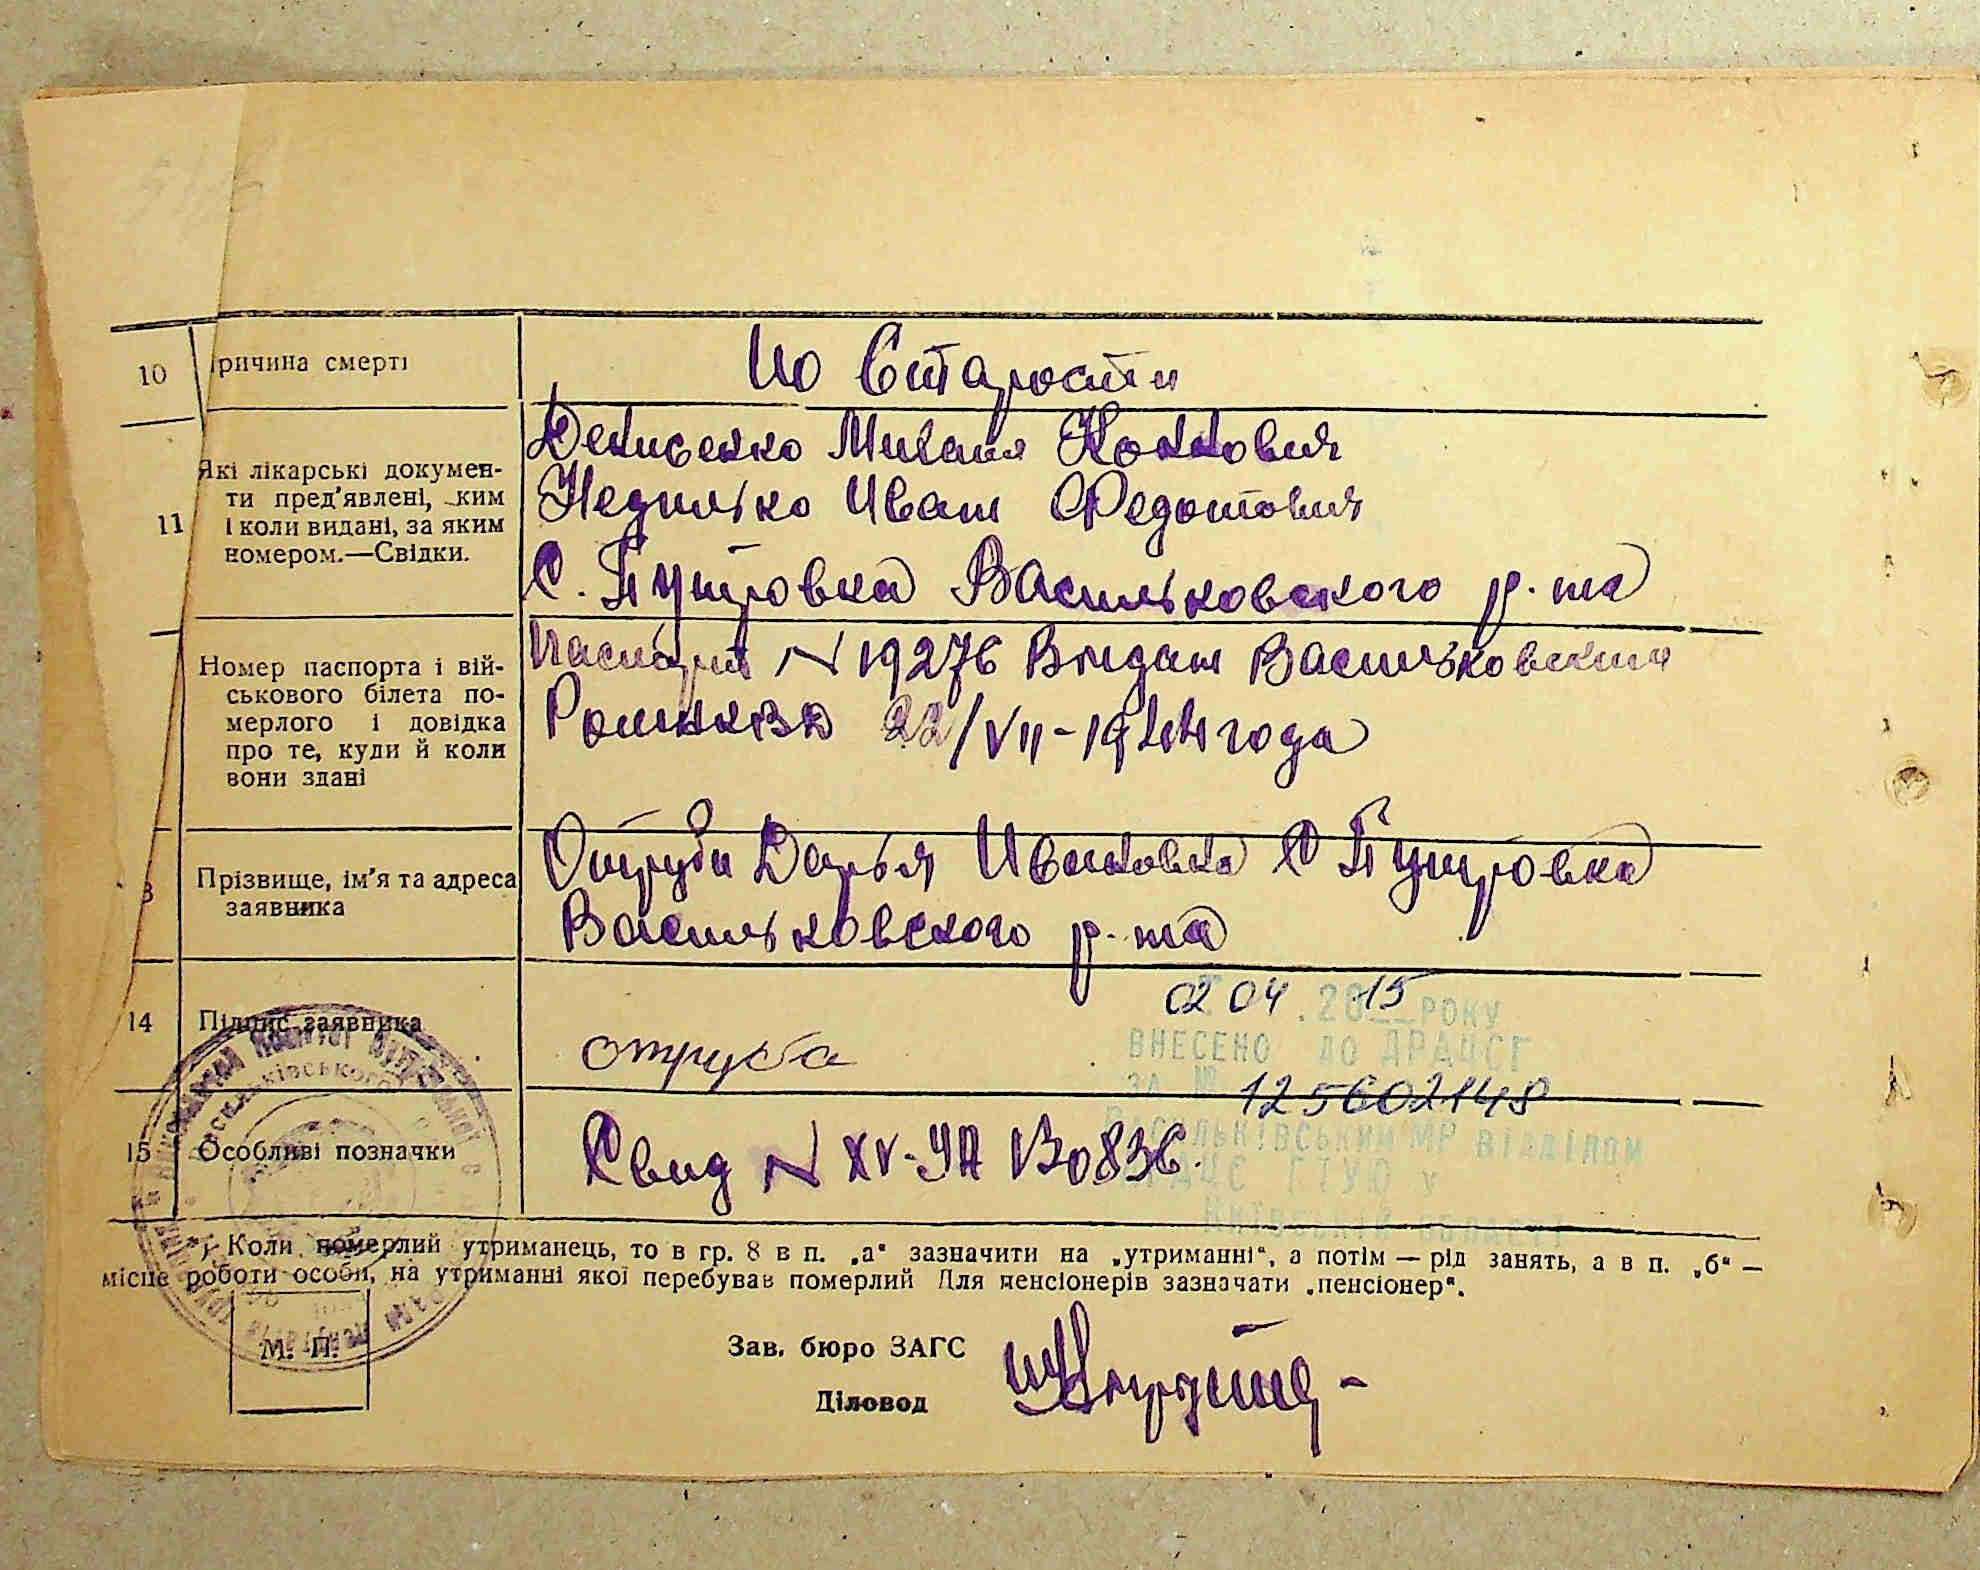 10 Причина смерті
По Старости
11 Які лікарські докумен-
ти пред'явлені, ким
і коли видані, за яким
номером.—Свідки.
Денисенко Михаил
Недилько Иван Федотович
С. Путровка Васильковского р. на
Номер паспорта і вій-
ськового білета по-
мерлого і довідка
про те, куди й коли
вони здані
Паспорт N 19276 Выдан Васильковским
22/VII-1944 года
Прізвище, ім'я та адреса
заявника
Отруба Дарья Ивановка С Путровка
Васильковского р. на
14 Підпис заявника
отруба
02 04 .2015 РОКУ
ВНЕСЕНО ДО ДРАЦСГ
ЗА № 125602148
ВАСИЛЬКІВСЬКИМ МР ВІДДІЛОМ
ДРАЦС ГТУЮ У
КИЇВСЬКІЙ ОБЛАСТІ
15 Особливі позначки
Свид N XV-УА 130836.
*) Коли померлий утриманець, то в гр. 8 в п. „а“ зазначити на „утриманні“, а потім — рід занять, а в п. „б“ —
місце роботи особи, на утриманні якої перебував померлий Для пенсіонерів зазначати „пенсіонер“.
М. П.
Зав. бюро ЗАГС
Діловод